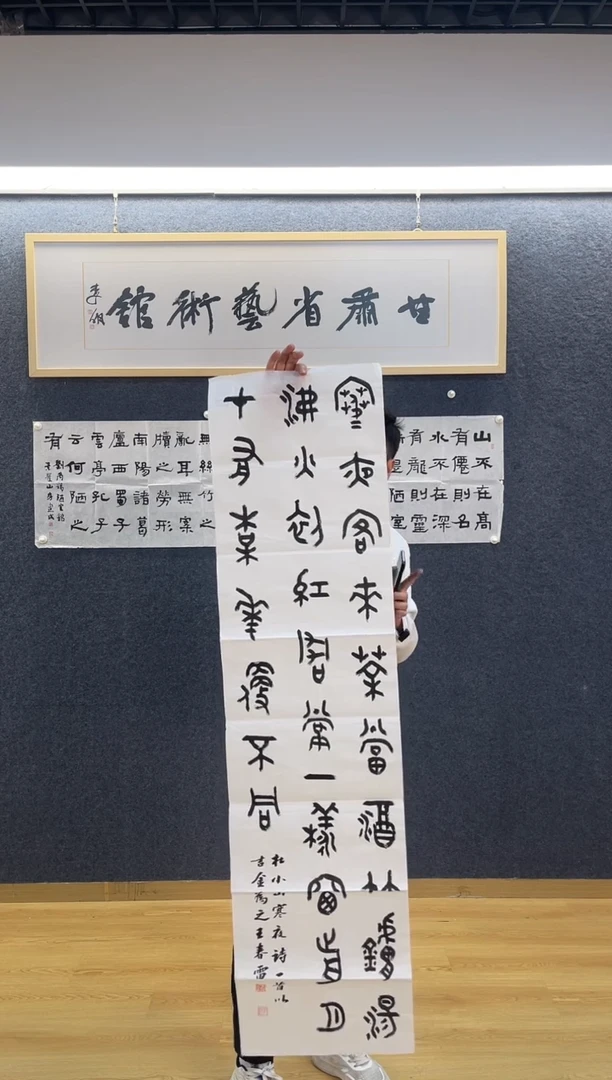 甘肅省藝術館
寒夜客來茶當酒竹鑪湯
沸火初紅尋常一樣窗前月
才有某華便不同
杜小山寒夜詩一首以
吉金為之王春雷
山不在高
有僊則名
水不在深
有龍則靈
斯是陋室
無絲竹之
亂耳無案
牘之勞形
南陽諸葛
廬西蜀子
雲亭孔子
云何陋之
有
劉禹錫陋室銘